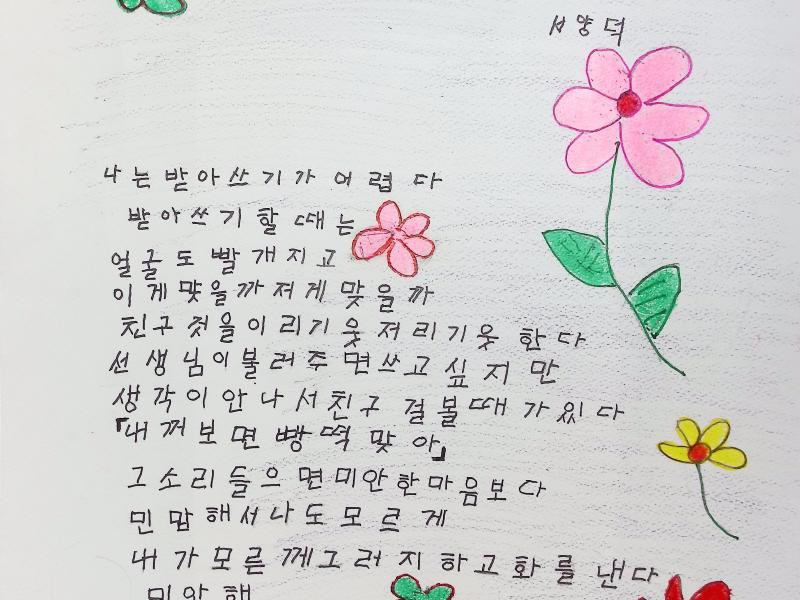 서양덕
나는 받아쓰기가 어렵다
받아쓰기 할 때는
얼굴도 빨개지고
이게 맟을까 저게 맟을까
친구 것을 이리기웃 저리기웃 한다
선생님이 불러주면 쓰고 싶지만
생각이 안나서 친구 걸 볼때가 있다
「내꺼 보면 빵떡 맞아」
그 소리 들으면 미안한 마음보다
민맙해서 나도 모르게
내가 모른께 그러지 하고 화를 낸다
미안해